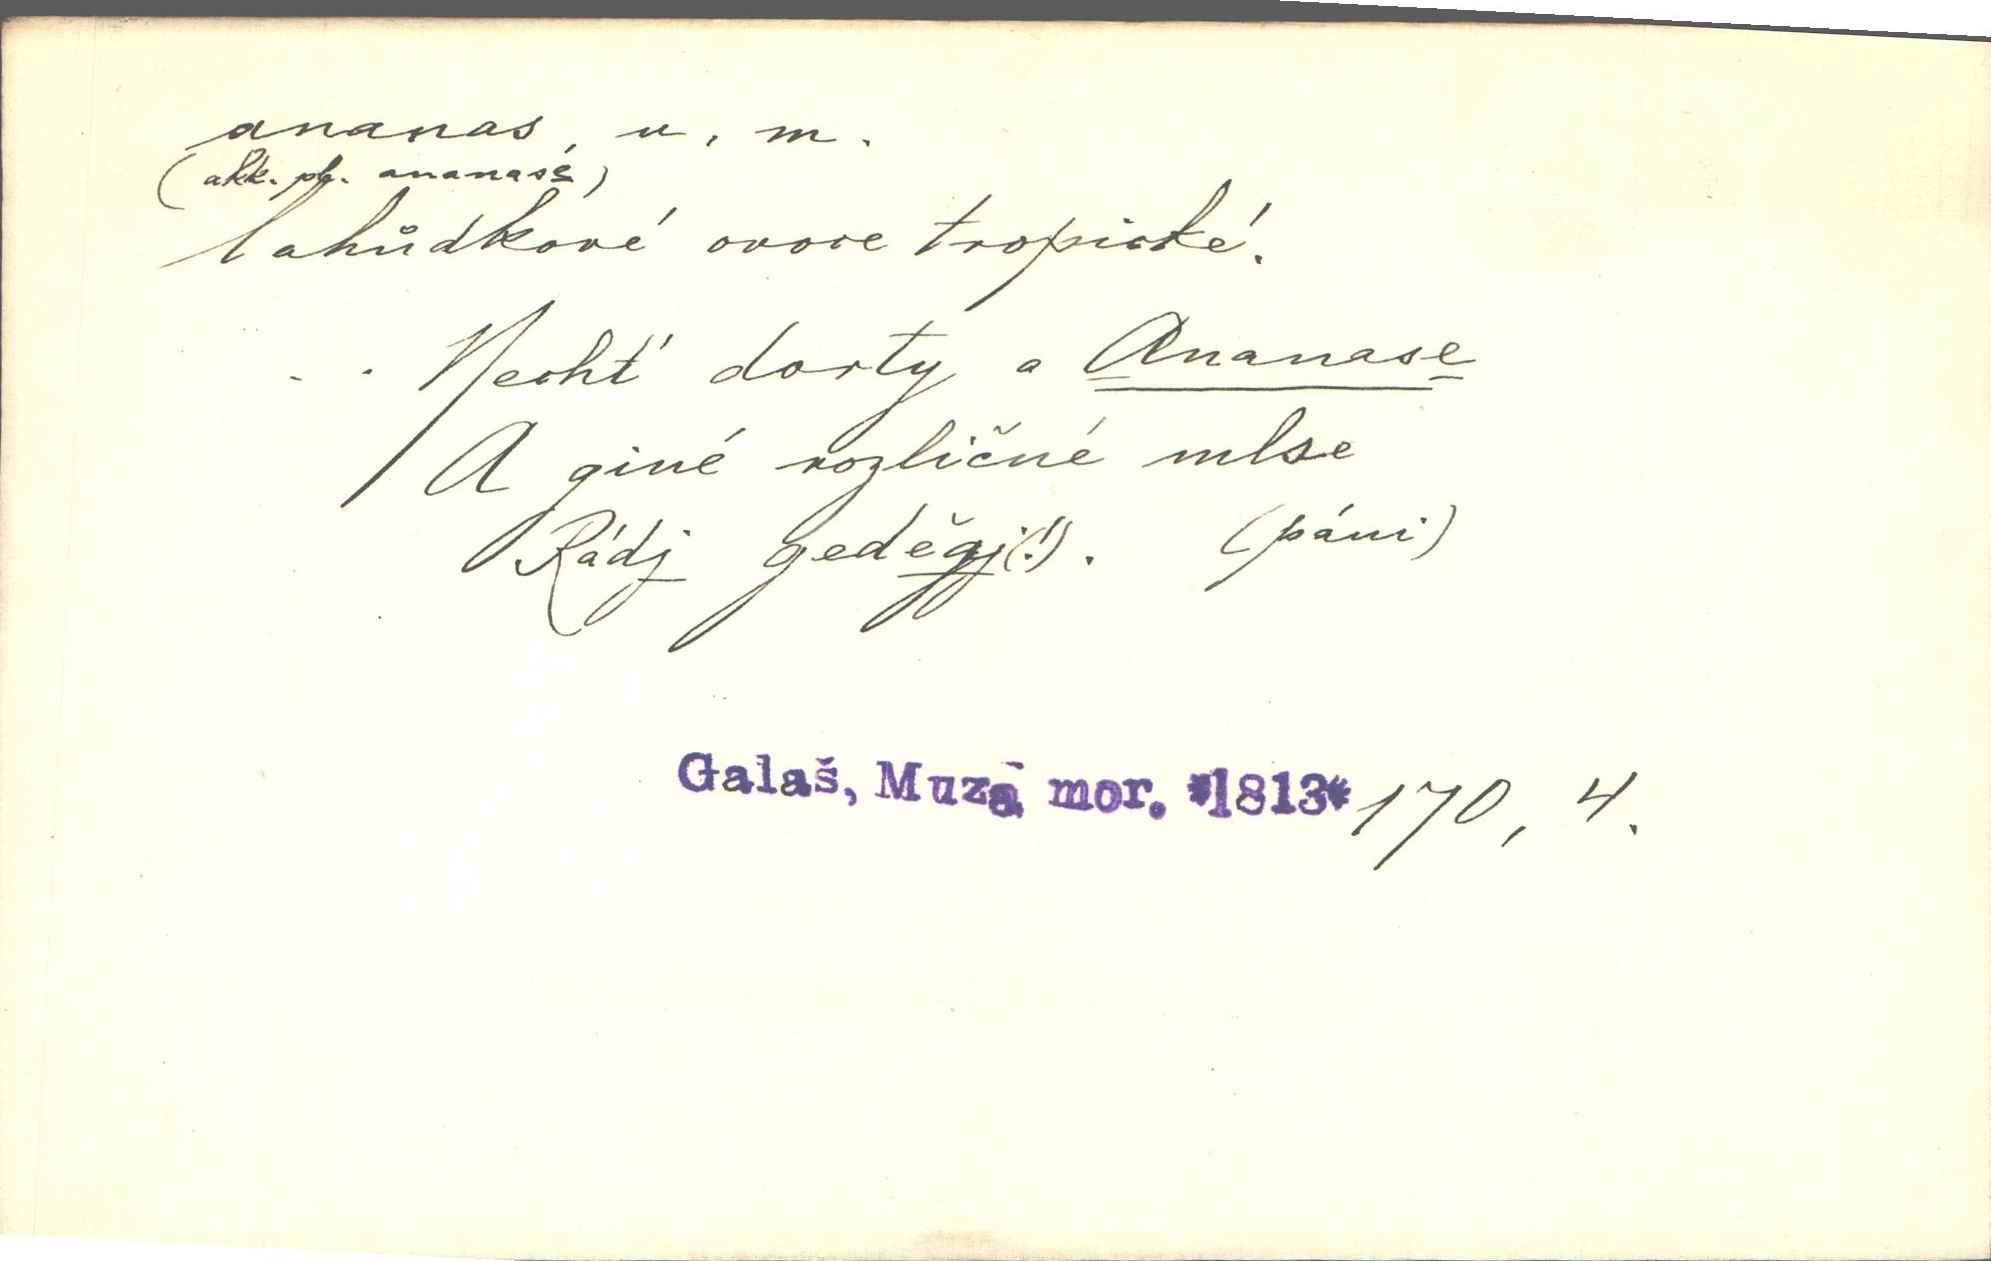 ananas, u, m.
(akk. pl. ananasé)
lahůdkové ovoce tropické.
. . Nechť dorty a Ananase
A giné rozličné mlse
Rádj geděgj(!). (páni)
Galaš, Muza mor. *1813* 170, 4.